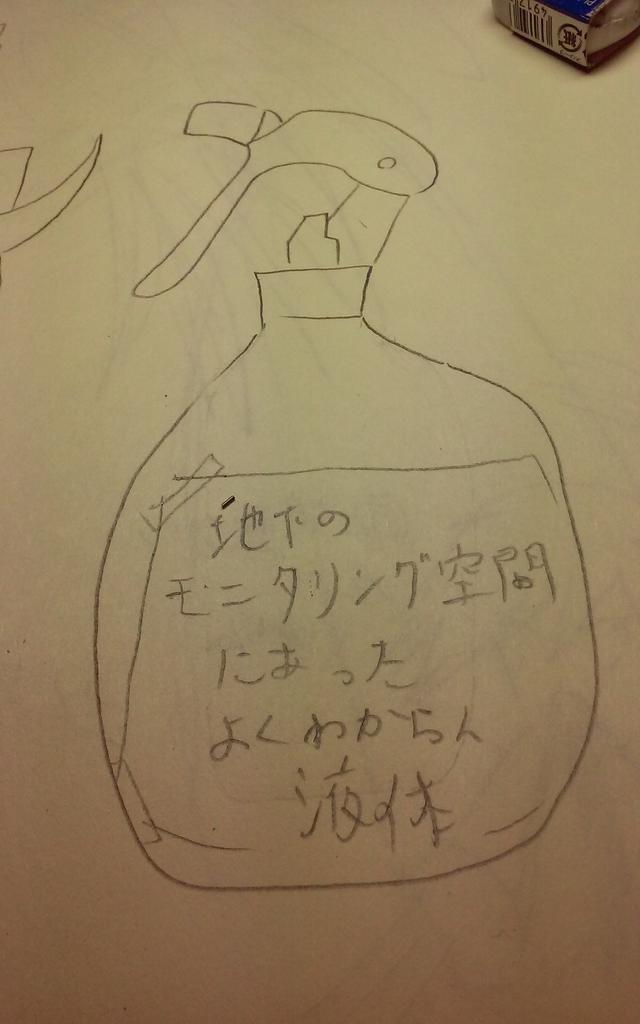 地下の
モニタリング空間
にあった
よくわからん
液体